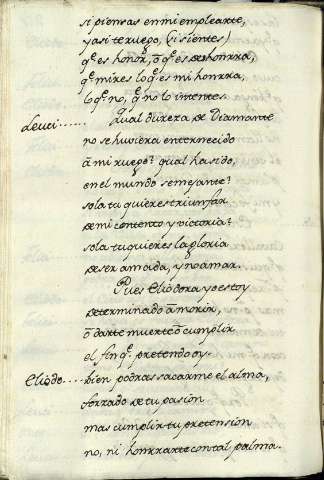 si piensas en mi emplearte,
y asi te ruego, (si sientes)
q̃ es honor, o q̃ es deshonrra,
q̃ mires lo q̃ es mi honrra,
lo q̃ no, q̃ no lo intentes.
Leuci...... Qual dureza de Diamante
no se huviera enternecido
a mi ruego? qual ha sido,
en el mundo semejante?
sola tu quieres triumfar
de mi contento y victoria?
sola tu quieres la gloria
de ser amada, y no amar.
Pues Eliodora yo estoy
determinado a morir,
o darte muerte o cumplir
el fin q̃ pretendo oy.
Eliodo.... bien podras sacarme el alma,
forzado de tu pasion
mas cumplir tu pretension
no, ni honrrarte con tal palma.